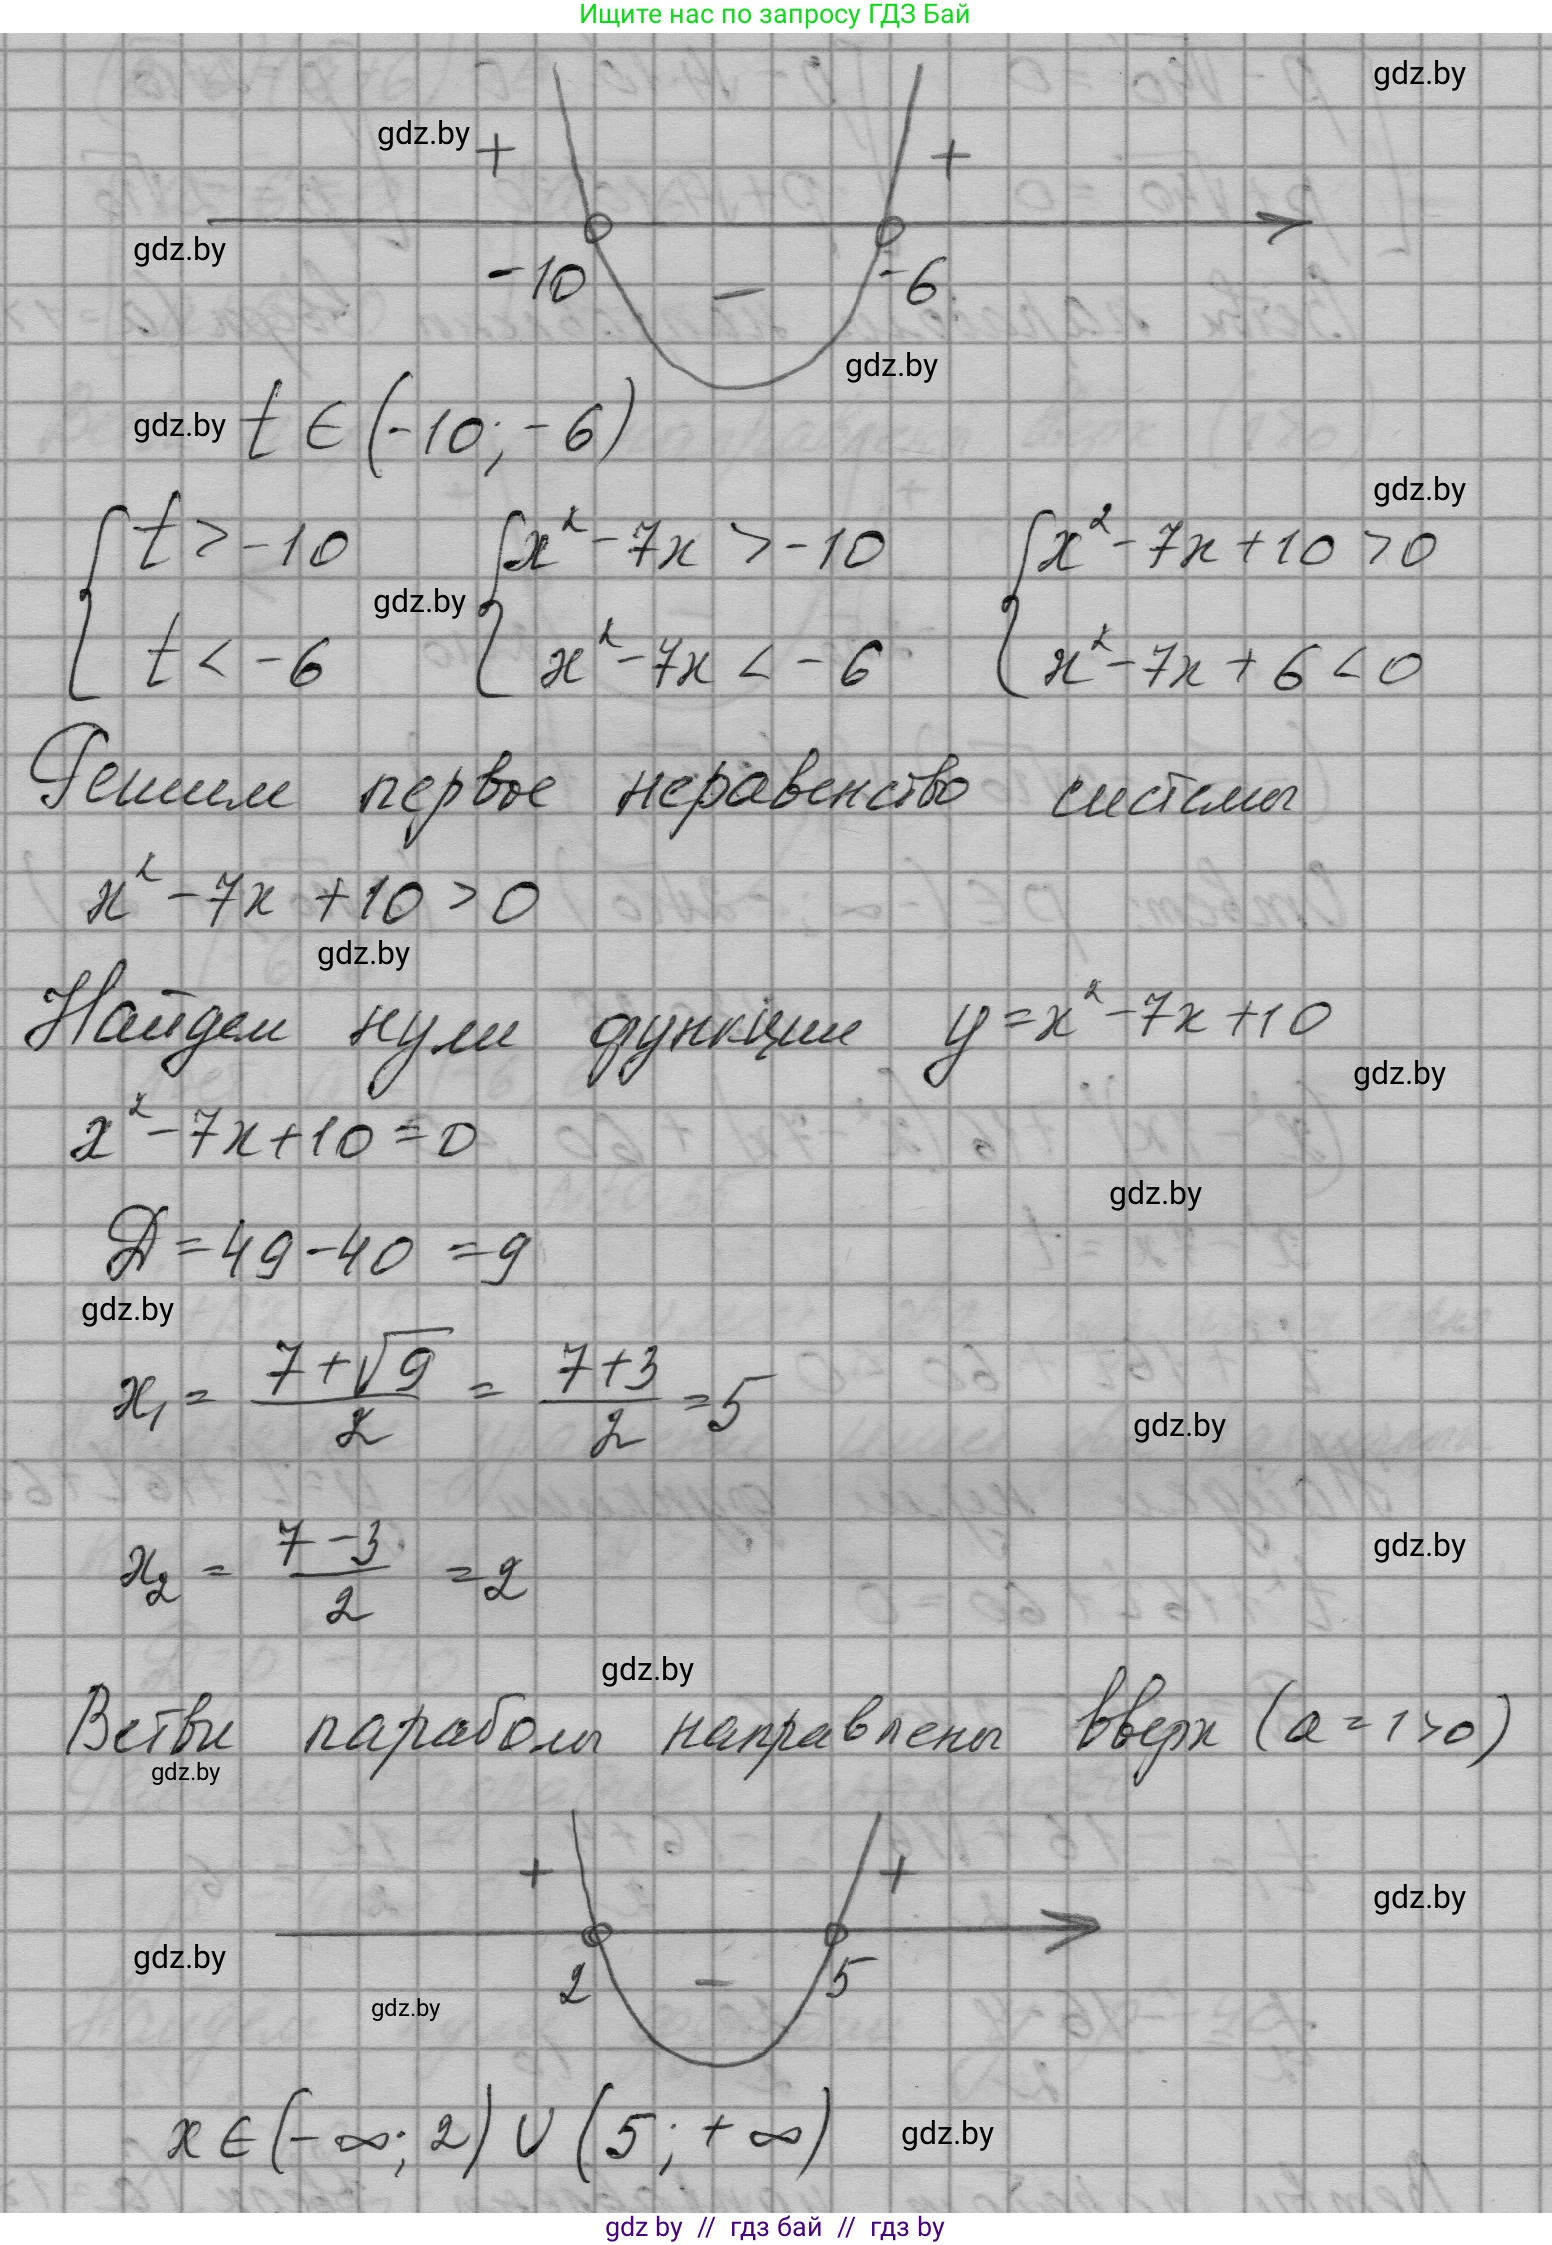 Ищите нас по запросу ГДЗ Бай
gdz.by
gdz.by
+ +
gdz.by
-10 - -6
gdz.by
gdz.by t ∈ (-10; -6)
gdz.by
{ t > -10 { x² - 7x > -10 { x² - 7x + 10 > 0
gdz.by
t < -6 x² - 7x < -6 x² - 7x + 6 < 0
Решим первое неравенство системы
x² - 7x + 10 > 0
gdz.by
Найдем нули функции y = x² - 7x + 10
gdz.by
x² - 7x + 10 = 0
gdz.by
D = 49 - 40 = 9
gdz.by
x₁ = (7 + √9)/2 = (7 + 3)/2 = 5
gdz.by
gdz.by
x₂ = (7 - 3)/2 = 2
gdz.by
Ветви параболы направлены вверх (a = 1 > 0)
gdz.by
+ +
gdz.by
gdz.by
2 - 5
gdz.by
x ∈ (-∞; 2) ∪ (5; +∞)
gdz.by
gdz by // гдз бай // гдз by